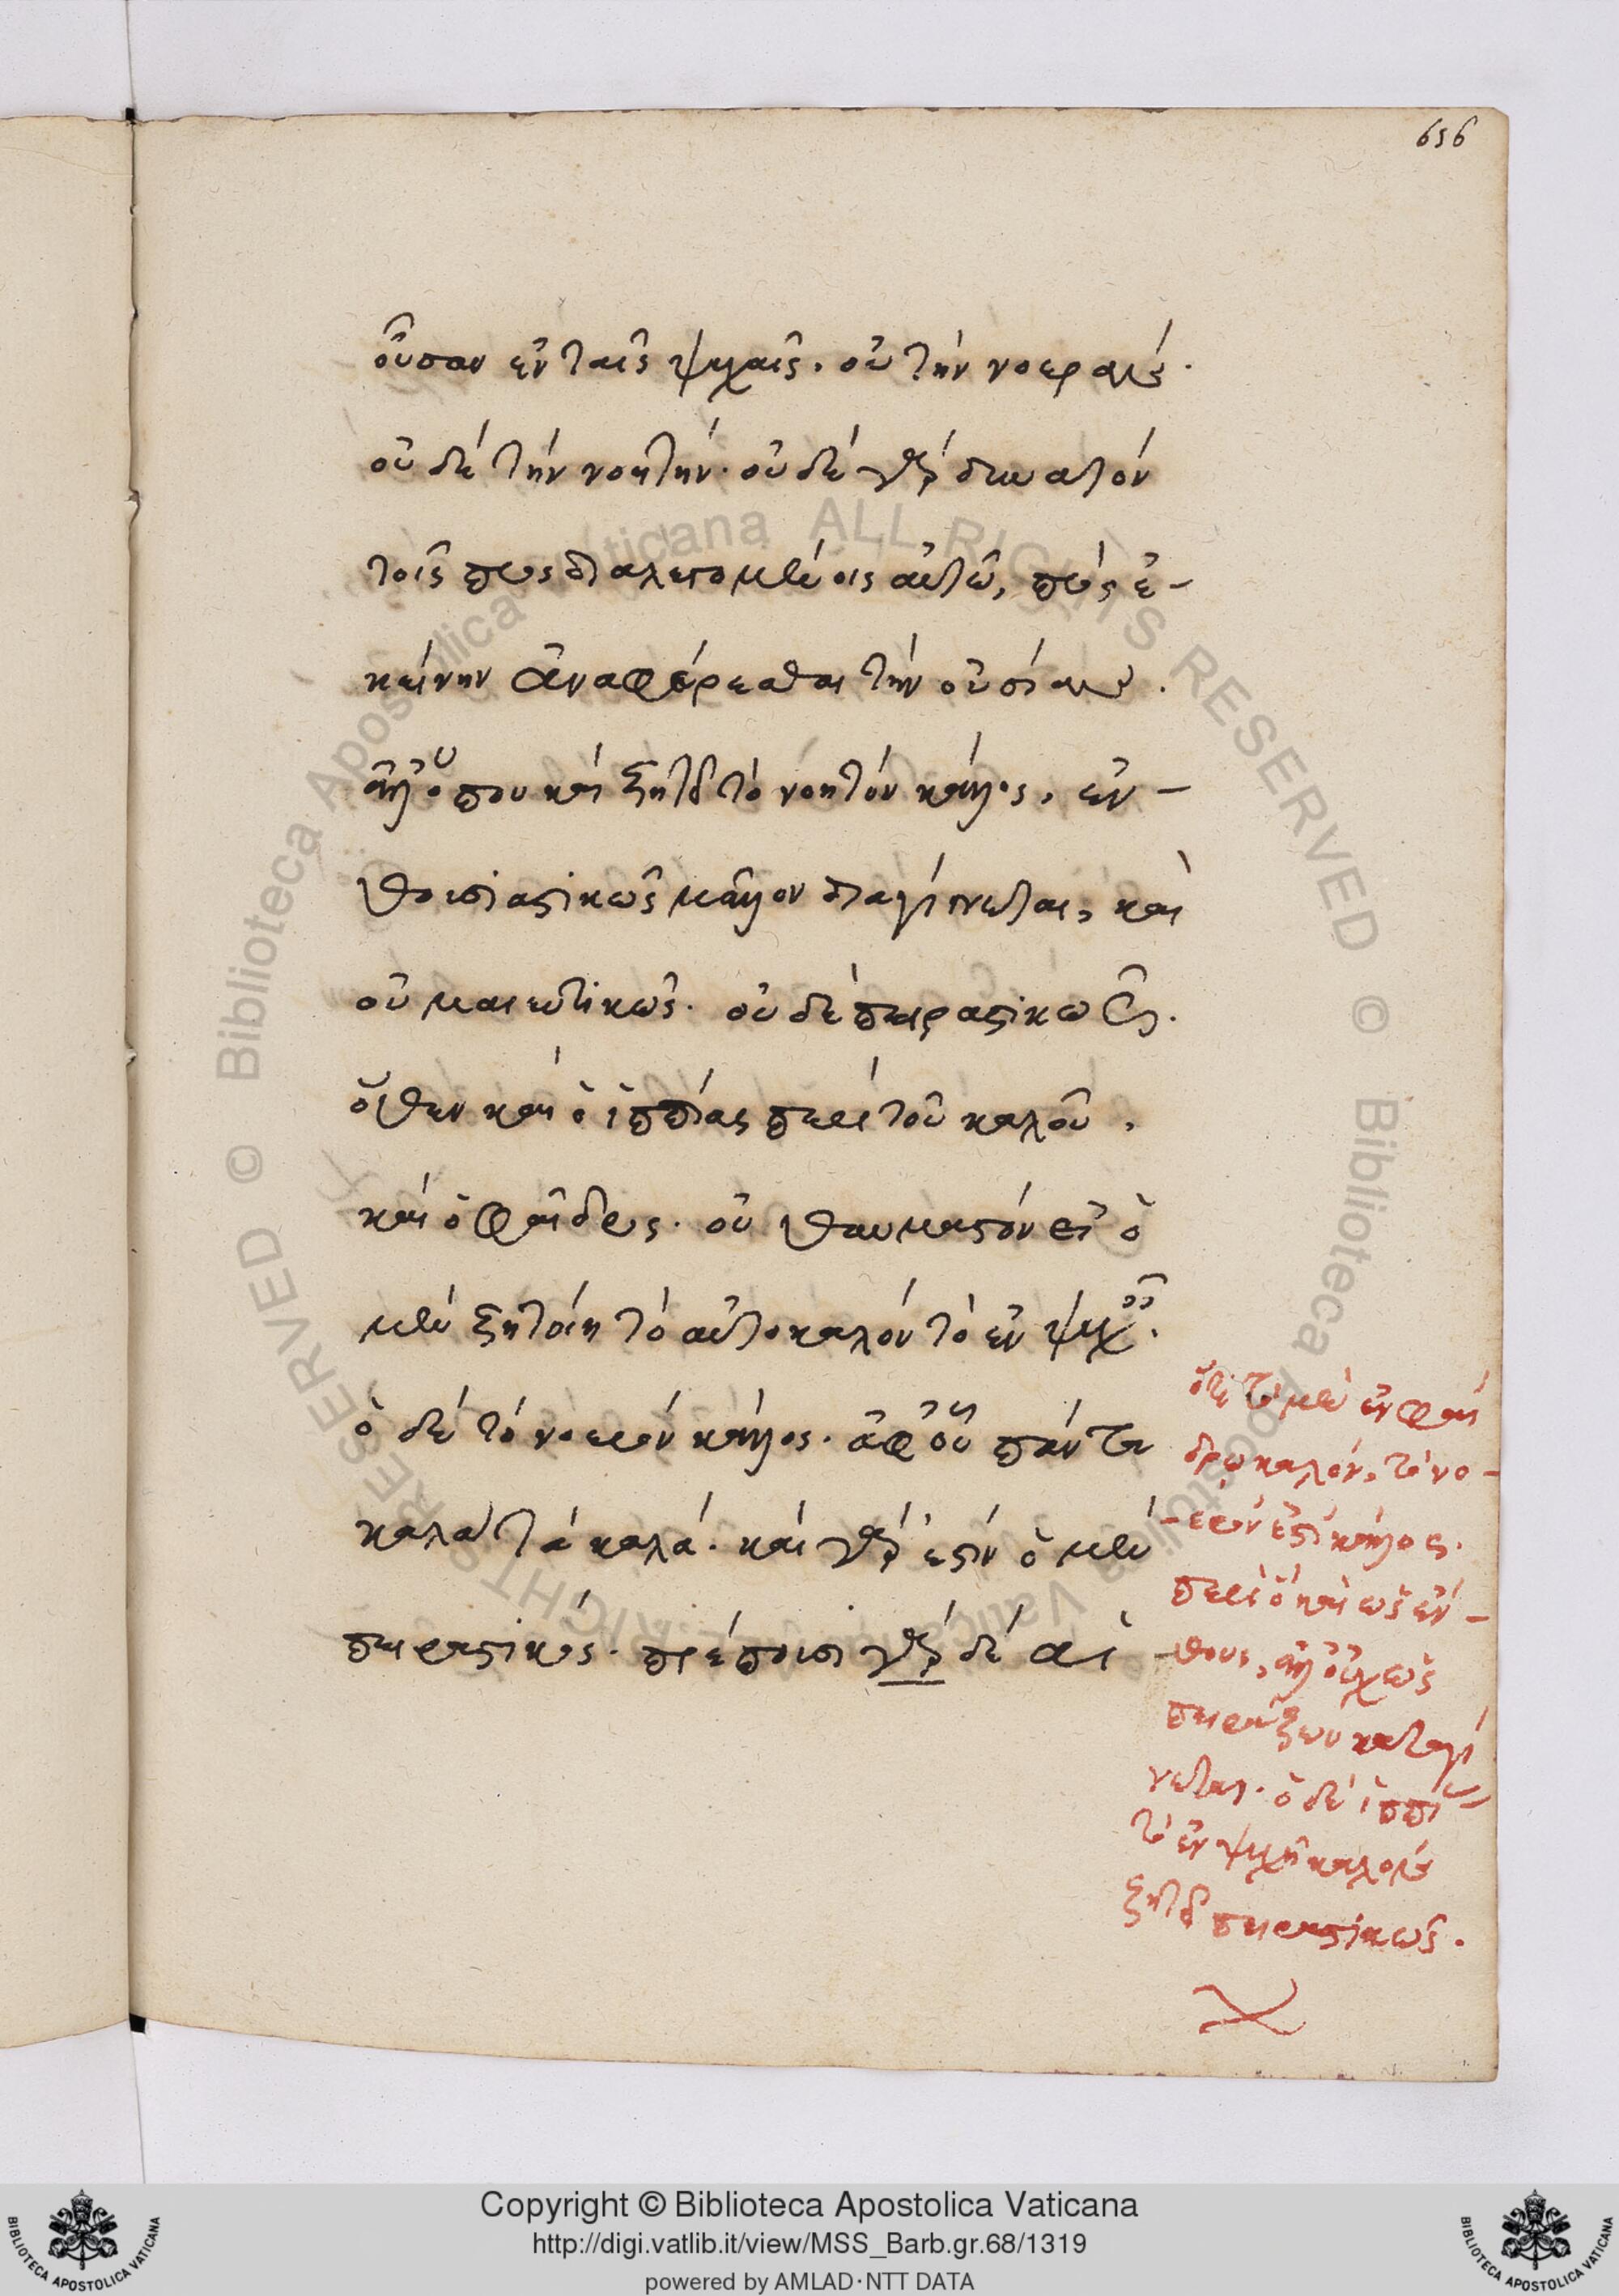 656
οὖσαν ἐν ταῖς ψυχαῖς. οὐ τὴν νοεράν.
οὐ δὲ τὴν νοητήν. οὐ δὲ γὰρ δυνατὸν
τοῖς προσδιαλεγομένοις αὐτῶ, πρὸς ἐ-
κείνην ἀναφέρεσθαι τὴν οὐσίαν.
ἀλλ' ὅπου καὶ ζητεῖ τὸ νοητὸν κάλλος, ἐν-
θουσιαστικῶς μᾶλλον διαγίνεται, καὶ
οὐ μαιευτικῶς. οὐ δὲ πειραστικῶς.
ὅθεν καὶ ὁ ἱππίας περὶ τοῦ καλοῦ,
καὶ ὁ φαῖδρος. οὐ θαυμαστὸν εἰ ὁ
μὲν ζητοίη τὸ αὐτοκαλὸν τὸ ἐν ψυχῆ.
ὁ δὲ τὸ νοερὸν κάλλος. ἀφ' οὗ πάντα
καλὰ τὰ καλά. καὶ γάρ ἐστιν ὁ μὲν
πειραστικός. πρέπουσι γὰρ δὲ αἱ
ὅτι τὸ μὲν ἐν φαί
δρω καλόν, τὸ νο-
-ερόν ἐστι κάλλος.
περὶ ὃ καὶ ὡς ἔν-
-θους, ἀλλ' οὐχ ὡς
πειράζων καταγί
νεται. ὁ δὲ ἱππί
τὸ ἐν ψυχῆ καλὸν
ζητεῖ πειραστικῶς.
Copyright © Biblioteca Apostolica Vaticana
http://digi.vatlib.it/view/MSS_Barb.gr.68/1319
powered by AMLAD·NTT DATA
BIBLIOTECA APOSTOLICA VATICANA
BIBLIOTECA APOSTOLICA VATICANA
© Biblioteca Apostolica Vaticana ALL RIGHTS RESERVED © Biblioteca Apostolica Vaticana ALL RIGHTS RESERVED